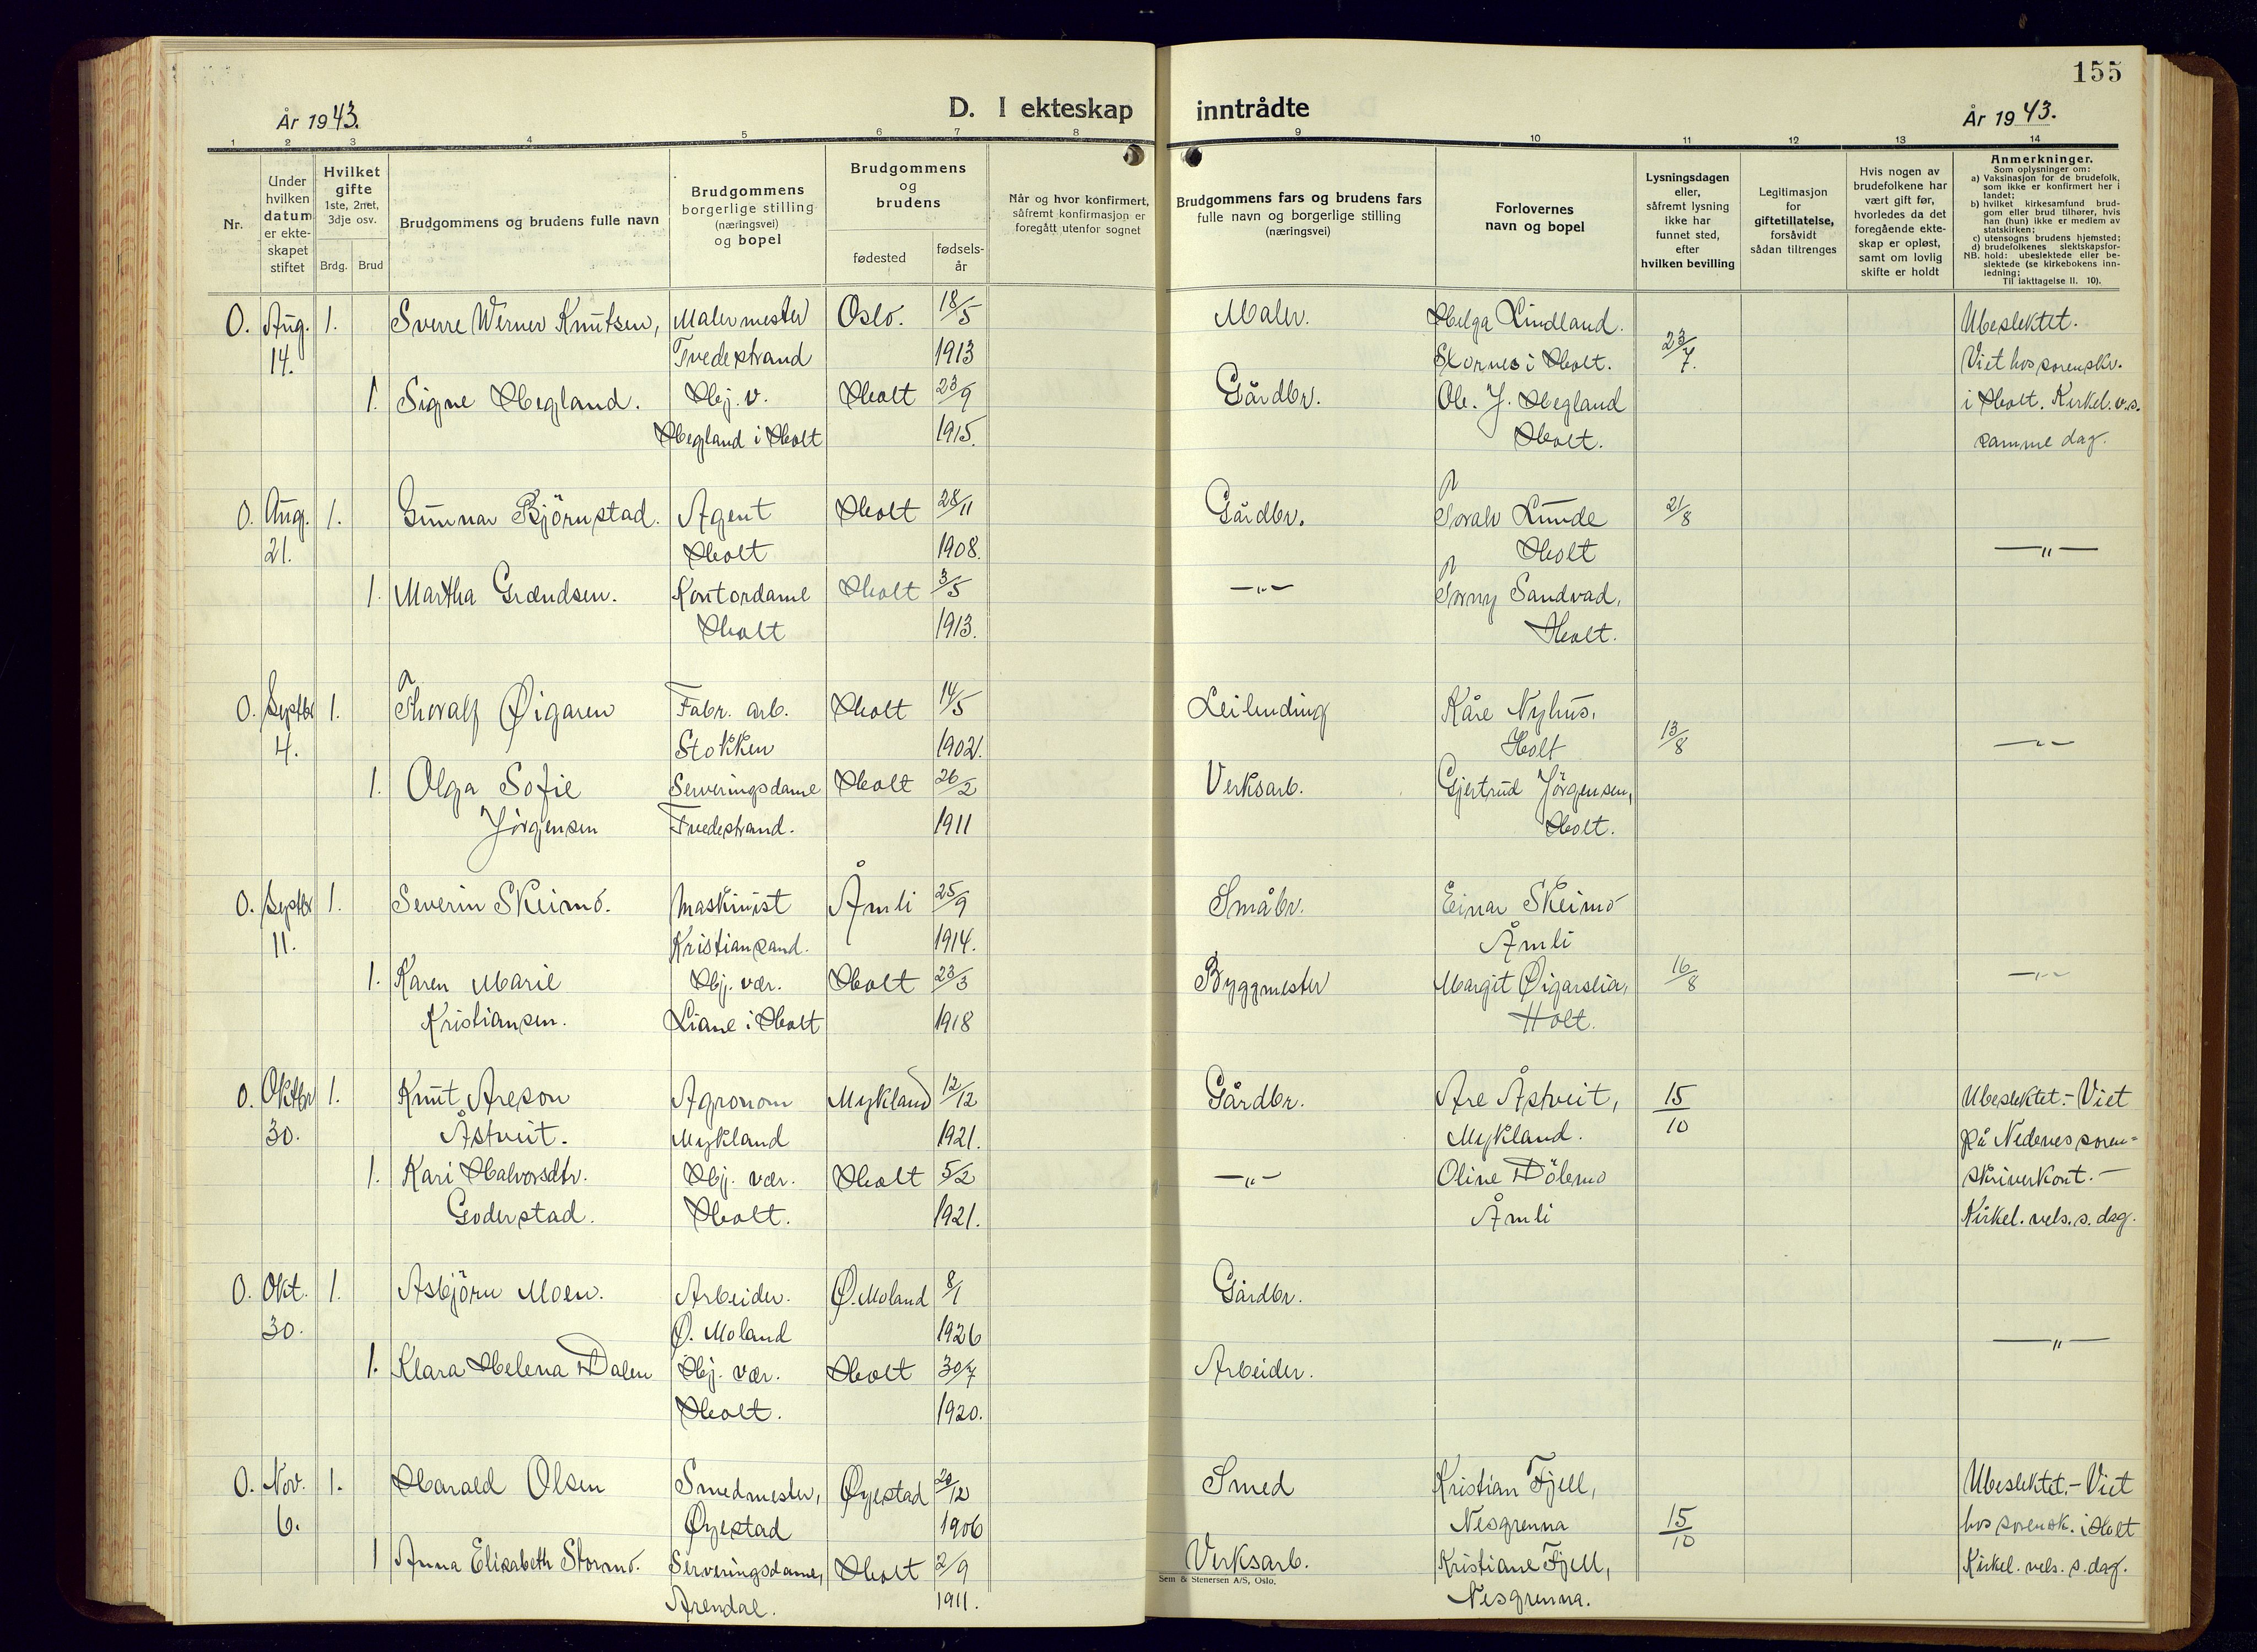 155
År 1943.
D. I ekteskap inntrådte
År 1943.
1 2 3 4 5 6 7 8 9 10 11 12 13 14
Nr.
Under hvilken datum er ekteskapet stiftet
Hvilket gifte 1ste, 2net, 3dje osv.
Brdg. Brud
Brudgommens og brudens fulle navn
Brudgommens borgerlige stilling (næringsvei) og bopel
Brudgommens og brudens
fødested
fødsels-år
Når og hvor konfirmert, såfremt konfirmasjon er foregått utenfor sognet
Brudgommens fars og brudens fars fulle navn og borgerlige stilling (næringsvei)
Forlovernes navn og bopel
Lysningsdagen eller, såfremt lysning ikke har funnet sted, efter hvilken bevilling
Legitimasjon for giftetillatelse, forsåvidt sådan tiltrenges
Hvis nogen av brudefolkene har vært gift før, hvorledes da det foregående ekteskap er opløst, samt om lovlig skifte er holdt
Anmerkninger.
Som oplysninger om:
a) Vaksinasjon for de brudefolk, som ikke er konfirmert her i landet;
b) hvilket kirkesamfund brudgom eller brud tilhører, hvis han (hun) ikke er medlem av statskirken;
c) utensogns brudens hjemsted;
d) brudefolkenes slektskapsforhold: ubeslektede eller beslektede (se kirkebokens innledning;
NB.
Til iakttagelse II. 10).
0. Aug. 1. Sverre Werner Knutsen, Malermester Oslo. 18/5 Maler. Helga Lindland. Ubeslektet.
14. Tvedestrand 1913 Skornes i Holt. 23/7. Viet hos sorenskr.
1. Signe Hegland. Hj. v. Holt 23/9 Gårdbr. Ole. J. Hegland i Holt. Kirkel. v. s.
Hegland i Holt 1915. Holt. samme dag.
0. Aug. 1. Gunnar Björnstad. Agent Holt 28/11 Gårdbr. Toralv Lunde 21/8
21. Holt 1908. Holt —„—
1. Martha Grændsen. Kontordame Holt 3/5 —„— Torny Sandvad,
Holt 1913. Holt.
0. Septbr 1. Thoralf Øigaren Fabr. arb. Holt 14/5 Leilending Kåre Nyhus,
4. Stokken 1902. Holt 13/8 —„—
1. Olga Sofie Serveringsdame Holt 26/2 Verksarb. Gjertrud Jörgensen,
Jörgensen Tvedestrand. 1911 Holt.
0. Septbr 1. Severin Skeimo. Maskinist Åmli 25/9 Småbr. Einar Skeimo
11. Kristiansand. 1914. Åmli
1. Karen Marie Hj. vær. Holt 23/3 Byggmester Margit Øigarslia, 16/8 —„—
Kristiansen. Liane i Holt 1918 Holt.
0. Oktbr 1. Knut Areson Agronom Mykland 12/12 Gårdbr. Are Åstveit, 15/10 Ubeslektet. – Viet
30. Åstveit. Mykland 1921. Mykland. på Nedenes soren=
1. Kari Halvorsdtr. Hj. vær. Holt 5/2 —„— Oline Dölemo skriverkont. –
Goderstad. Holt. 1921. Åmli Kirkel. vels. s. dag.
0. Okt. 1. Asbjörn Moen. Arbeider. Ø. Moland 8/1 Gårdbr.
30. Ø. Moland 1926 —„—
1. Klara Helena Dalen Hj. vær. Holt 30/7 Arbeider.
Holt. 1920.
0. Nov. 1. Harald Olsen Smedmester, Øyestad 20/12 Smed Kristian Fjell, Ubeslektet. – Viet
6. Øyestad 1906 Nesgrenna 15/10 hos sorensk. i Holt
1 Anna Elisabeth Stormo. Serveringsdame, Holt 2/9 Verksarb. Kristiane Fjell, Kirkel. vels. s. dag.
Arendal. 1911. Nesgrenna.
Sem & Stenersen A/S, Oslo.